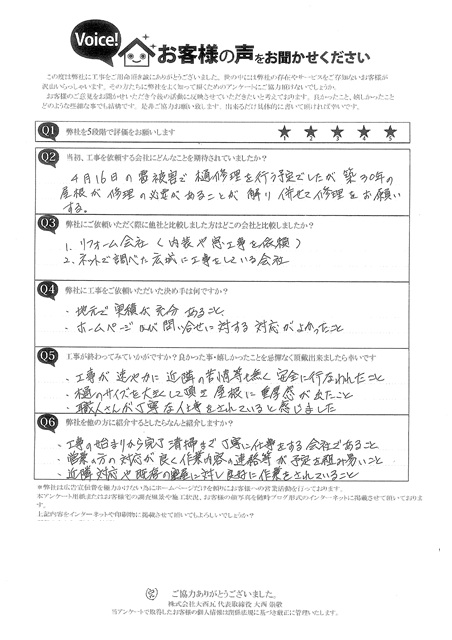 Voice!
お客様の声をお聞かせください
この度は弊社に工事をご用命頂き誠にありがとうございました。世の中には弊社の存在やサービスをご存知ないお客様が
沢山いらっしゃいます。その方たちに弊社をよく知って頂くためのアンケートにご協力頂けないでしょうか。
お客様のご意見をお聞かせいただき今後の活動に反映させていただきたいと考えております。良かったこと、嬉しかったこと
どのような些細な事でも結構です。是非ご協力お願い致します。出来るだけ具体的に書いて頂ければ幸いです。
Q1 弊社を5段階で評価をお願いします ★ ★ ★ ★ ★
1 2 3 4 5
Q2 当初、工事を依頼する会社にどんなことを期待されていましたか？
4月16日の雹被害で樋修理を行う予定でしたが築30年の
屋根が修理の必要があることが解り併せて修理をお願い
する。
Q3 弊社にご依頼いただく際に他社と比較しました方はどこの会社と比較しましたか？
1. リフォーム会社（内装や窓工事を依頼）
2. ネットで調べた広域に工事をしている会社
Q4 弊社に工事をご依頼いただいた決め手は何ですか？
・地元で実積が充分あること
・ホームページ 問い合せに対する対応がよかったこと
Q5 工事が終わってみていかがですか？良かった事・嬉しかったことを忌憚なく頂戴出来ましたら幸いです
・工事が速やかに近隣の苦情等も無く安全に行なわれたこと
・樋のサイズを大きくして頂き屋根に重厚感が出たこと
・職人さんが丁寧な仕事をされていると感じました
Q6 弊社を他の方に紹介するとしたらなんと紹介しますか？
・工事の始まりから完了清掃まで丁寧に仕事をする会社であること
・営業の方の対応が良く作業内容の連絡等が予定を組み易いこと
・近隣対応や既存の 対し良好に作業をされていること
※弊社は広告宣伝費を極力かけない為にホームページだけを頼りにお客様への営業活動を行っております。
本アンケート用紙またはお客様宅の調査風景や施工状況、お客様の顔写真を随時ブログ形式のインターネットに掲載させて頂いておりま
す。
上記内容をインターネットや印刷物に掲載させて頂いてもよろしいでしょうか？
ご協力ありがとうございました。
株式会社大西瓦 代表取締役 大西
当アンケートで取得したお客様の個人情報は関係法規に基づき厳正に管理いたします。